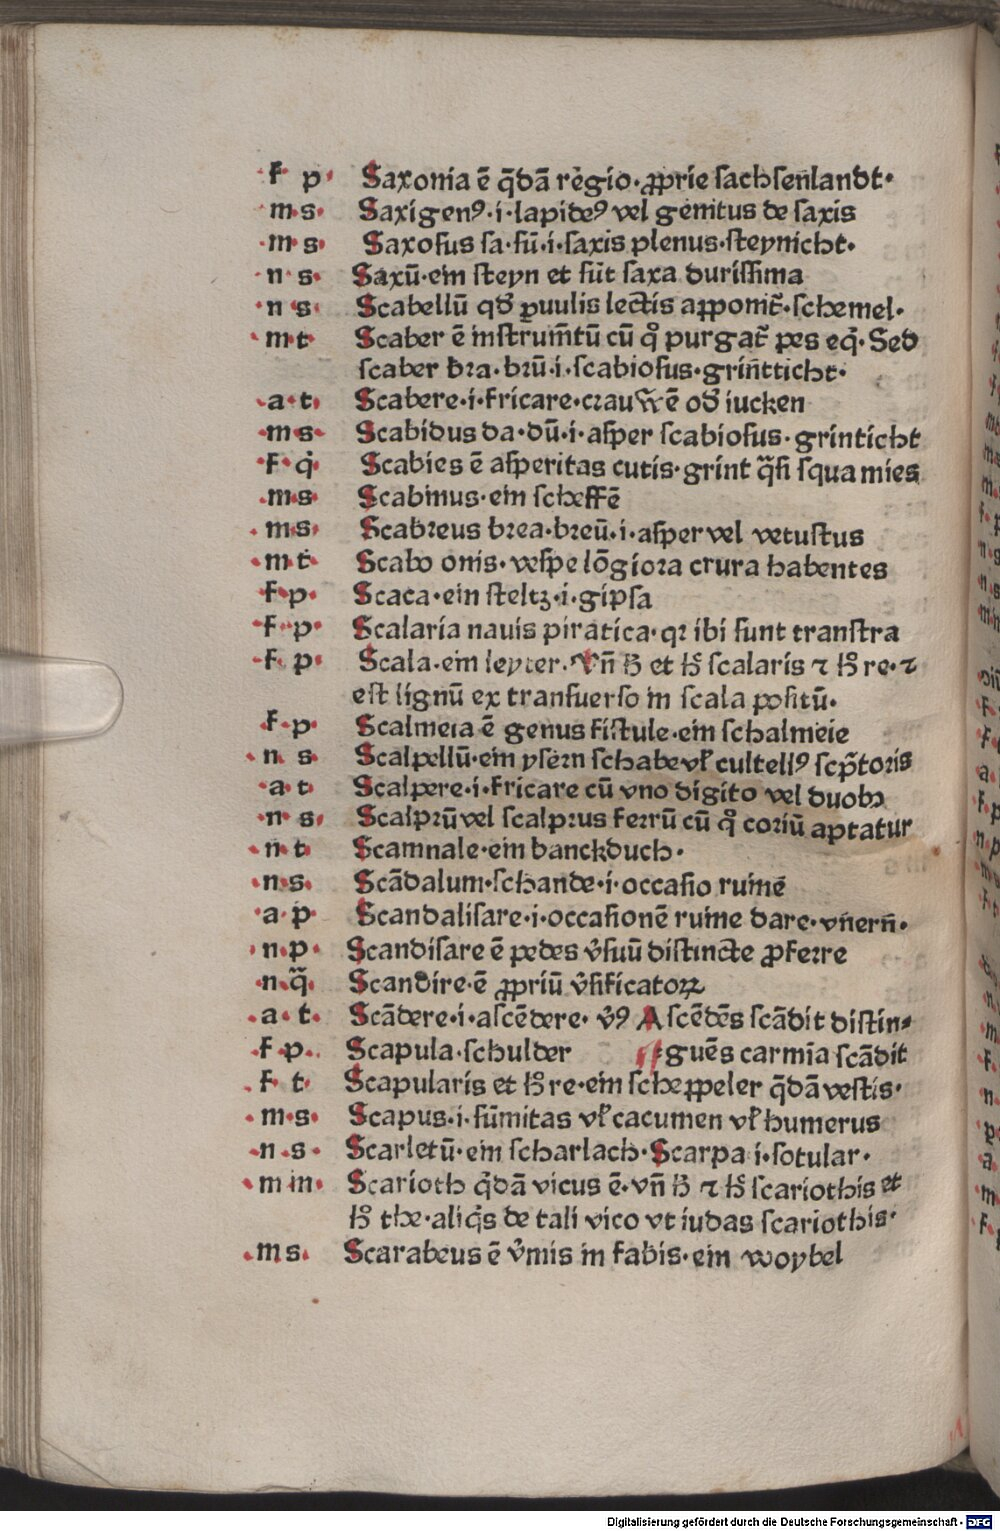 ·f· p· Saxonia ē q̄dā rēgio· ꝓprie sachsenlandt·
·m·s· Saxigenꝰ·i·lapideꝰ vel genitus de saxis
·m·s· Saxosus sa·sū·i·saxis plenus·steynicht·
·n· s· Saxū·ein steyn et sūt saxa durissima
·n· s· Scabellū qd̄ ꝑuulis lectis apponit᷑·schemel·
·m·t· Scaber ē instrum̄tū cū qͦ purgat᷑ pes eqͥ· Sed
scaber bꝛa·bꝛū·i·scabiosus·grin̄tticht·
·a·t· Scabere·i·fricare·crauwē od̄ iucken
·m·s· Scabidus da·dū·i·asper scabiosus·grinticht
·f·q̇· Scabies ē asperitas cutis·grint q̄si squa mies
·m·s· Scabinus·ein scheffē
·m·s· Scabꝛeus bꝛea·bꝛeū·i·asper vel vetustus
·m·t· Scabo onis·vespe lōgioꝛa crura habentes
·f·p· Scaca·ein steltʒ·i·gipsa
·f·p· Scalaria nauis piratica·qꝛ ibi sunt transtra
·f· p· Scala·ein leyter·Vn̄ ꝧ et ꝧ scalaris ⁊ ꝧ re·⁊
est lignū ex transuerso in scala positū·
·f·p· Scalmeia ē genus fistule·ein schalmeie
·n· s· Scalpellū·ein ysern schabe vl̓ cultellꝰ scp̄toris
·a·t· Scalpere·i·fricare cū vno digito vel duobꝫ
·n· s· Scalpꝛū vel scalpꝛus ferrū cū qͦ coꝛiū aptatur
·n·t· Scamnale·ein banckduch·
·n·s· Scādalum·schande·i·occasio ruinē
·a·p· Scandalisare·i·occasionē ruine dare·vn̄ern̄·
·n·p· Scandisare ē pedes v̓suū distincte ꝓfeꝛre
·n·q̄· Scandire·ē ꝓpriū v̓sificatoꝝ
·a·t· Scādere·i·ascēdere· v̓ꝰ Ascēdēs scādit distin⸗
·f·p·. Scapula·schulder guēs carmīa scādit
·f· t· Scapularis et ꝧ re·ein scheppeler q̄dā vestis·
·m·s· Scapus·i·sūmitas vl̓ cacumen vl̓ humerus
·n·s· Scarletū·ein scharlach·Scarpa i·sotular·
·m in· Scarioth q̇dā vicus ē·vn̄ ꝧ ⁊ ꝧ scariothis et
ꝧ the·aliq̇s de tali vico vt iudas scariothis·
·m s· Scarabeus ē v̓mis in fabis·ein woybel
Digitalisierung gefördert durch die Deutsche Forschungsgemeinschaft - DFG